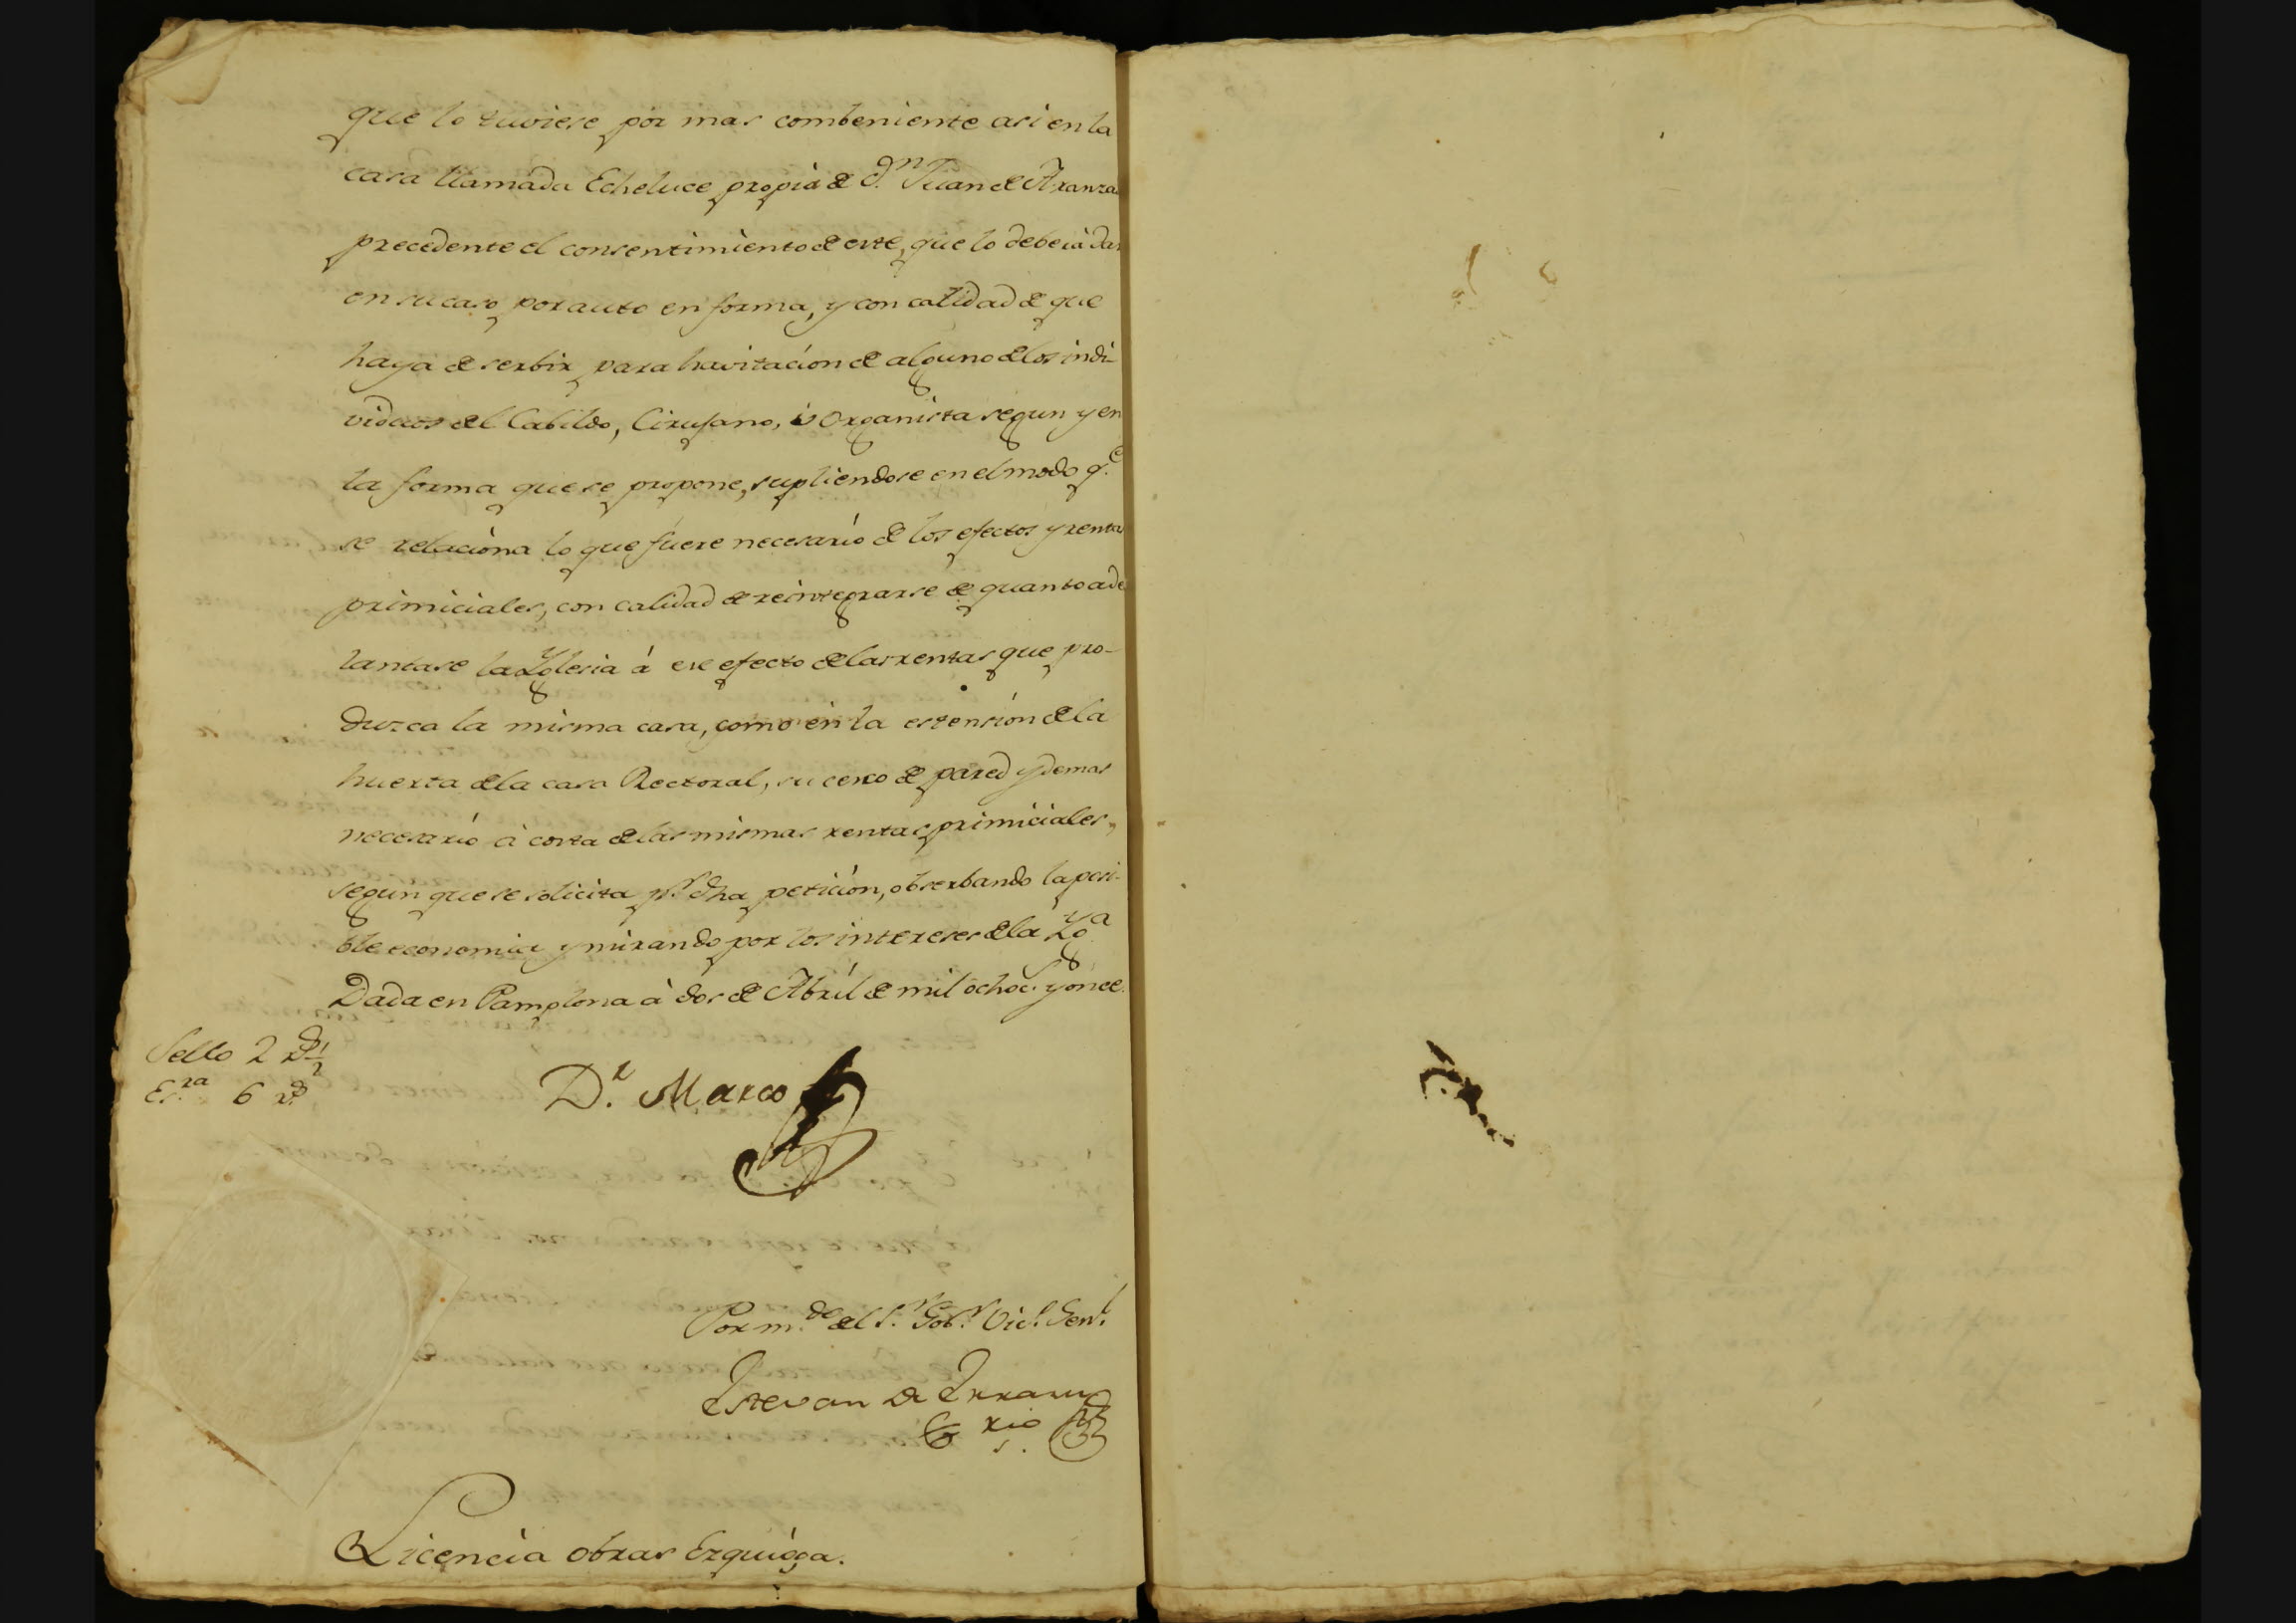 que lo tuviese por mas combeniente asi en la
casa llamada Echeluce propia de Dn. Juan de Aranza
precedente el consentimiento de este, que lo deberá dar
en su caso por auto en forma, y con calidad de que
haya de serbir para havitacion de alguno de los indi-
viduos del Cabildo, Cirujano, ú Organista segun y en
la forma que se propone, supliendose en el modo qe.
se relaciona lo que fuere necesario de los efectos y rentas
primiciales, con calidad de reintegrarse de quanto ade
lantase la Yglesia á ese efecto de las rentas que pro-
duzca la misma casa, como en la estension de la
huerta de la casa Rectoral, su cerco de pared y demas
necesario á costa de las mismas rentas primiciales,
segun que se solicita pr. dha peticion, obserbando la posi-
ble economia y mirando por los intereses de la Yga.
Dada en Pamplona á dos de Abril de mil ochocs. y once.
Sello 2 rs. 1/2
Esra. 6 rs.
Dr. Marco
Por mdo. del Sr. Gobr. Vico. Genl.
Estevan de
Srio.
Licencia obras Ezquioga.